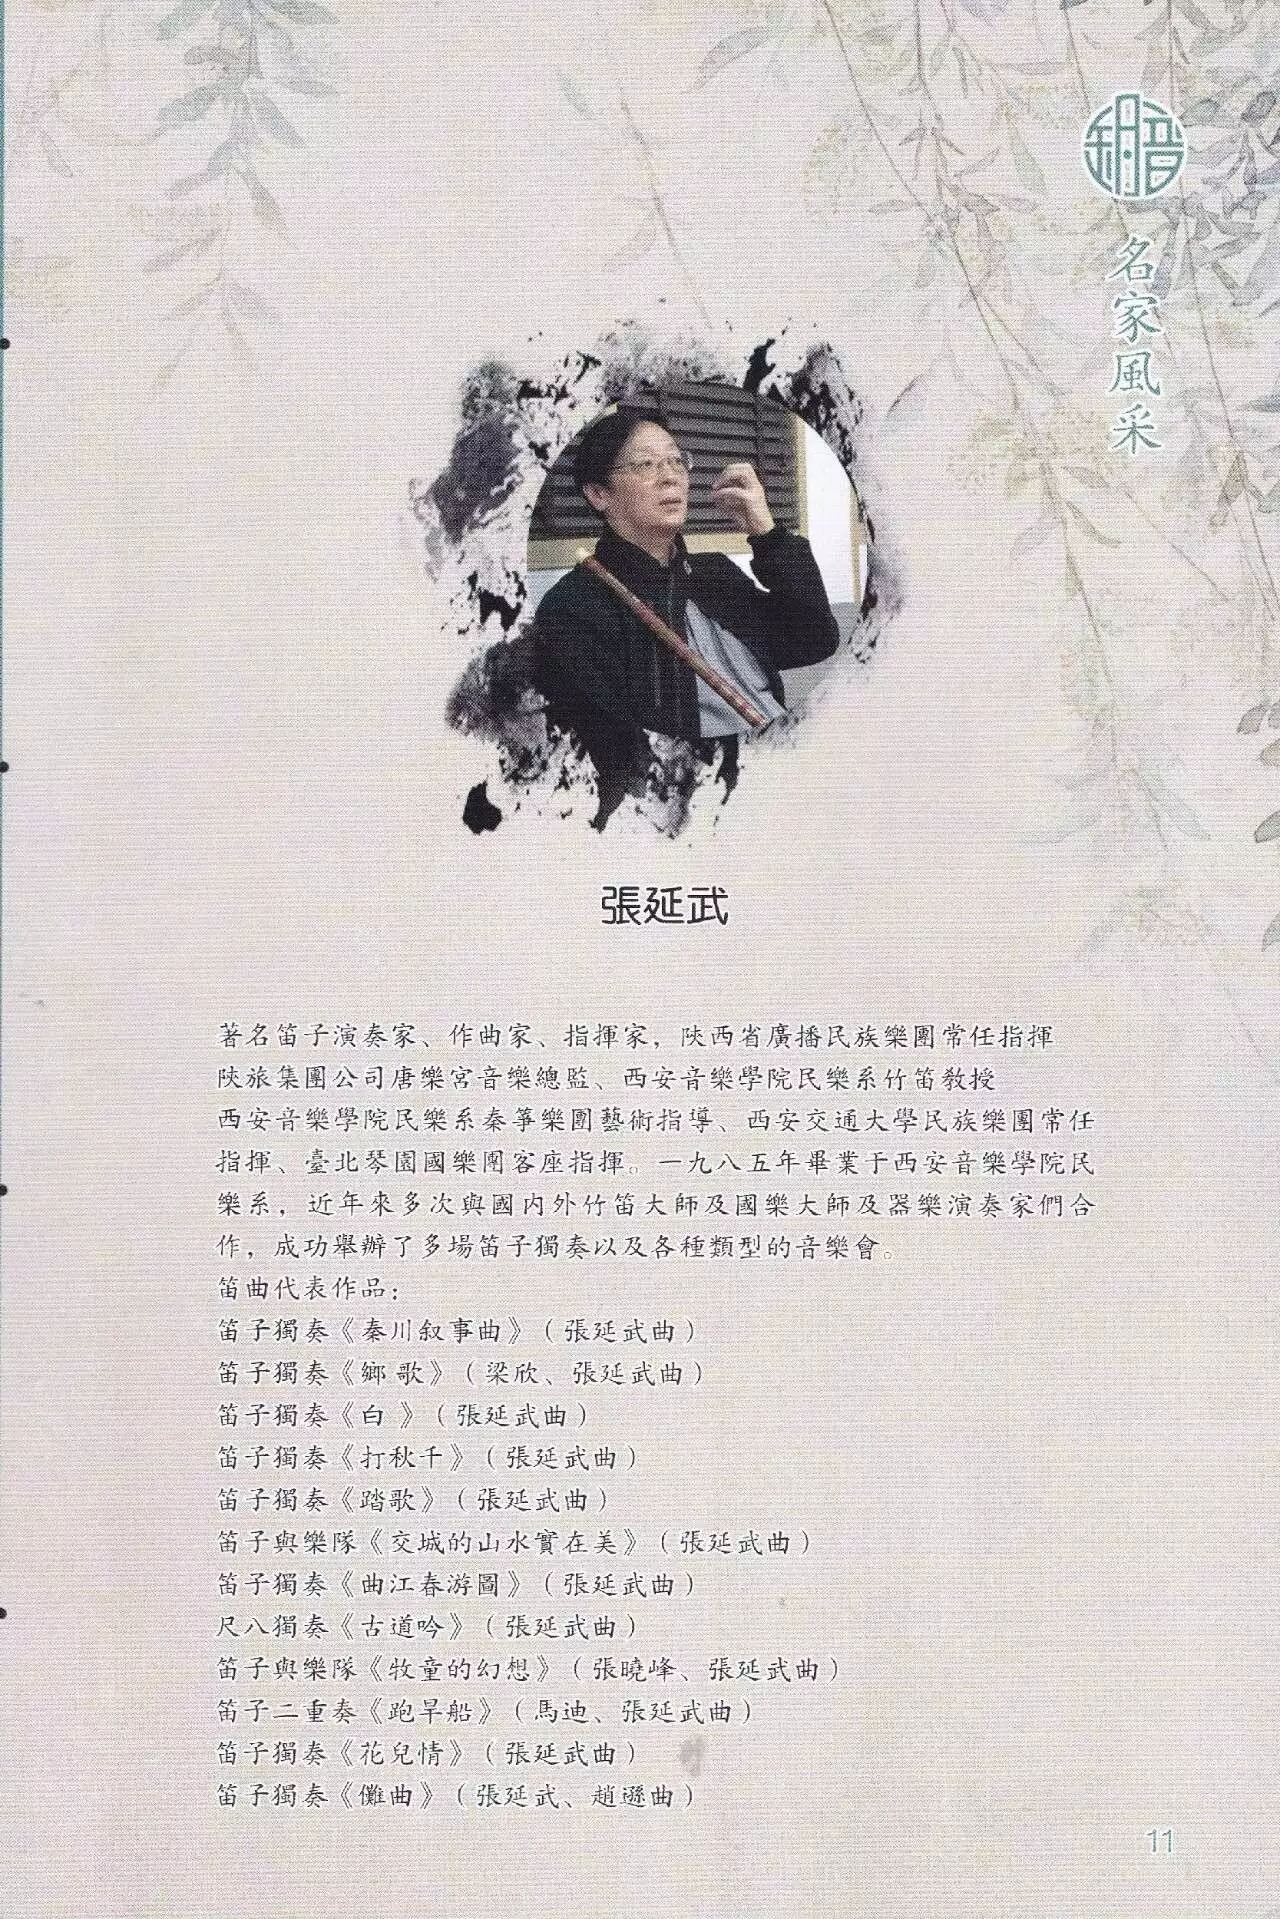 名家風采
張延武
著名笛子演奏家、作曲家、指揮家，陝西省廣播民族樂團常任指揮
陝旅集團公司唐樂宮音樂總監、西安音樂學院民樂系竹笛教授
西安音樂學院民樂系秦箏樂團藝術指導、西安交通大學民族樂團常任
指揮、臺北琴園國樂團客座指揮。一九八五年畢業于西安音樂學院民
樂系，近年來多次與國內外竹笛大師及國樂大師及器樂演奏家們合
作，成功舉辦了多場笛子獨奏以及各種類型的音樂會。
笛曲代表作品：
笛子獨奏《秦川叙事曲》（張延武曲）
笛子獨奏《鄉 歌》（梁欣、張延武曲）
笛子獨奏《白 》（張延武曲）
笛子獨奏《打秋千》（張延武曲）
笛子獨奏《踏歌》（張延武曲）
笛子與樂隊《交城的山水實在美》（張延武曲）
笛子獨奏《曲江春游圖》（張延武曲）
尺八獨奏《古道吟》（張延武曲）
笛子與樂隊《牧童的幻想》（張曉峰、張延武曲）
笛子二重奏《跑旱船》（馬迪、張延武曲）
笛子獨奏《花兒情》（張延武曲）
笛子獨奏《儺曲》（張延武、趙遜曲）
11